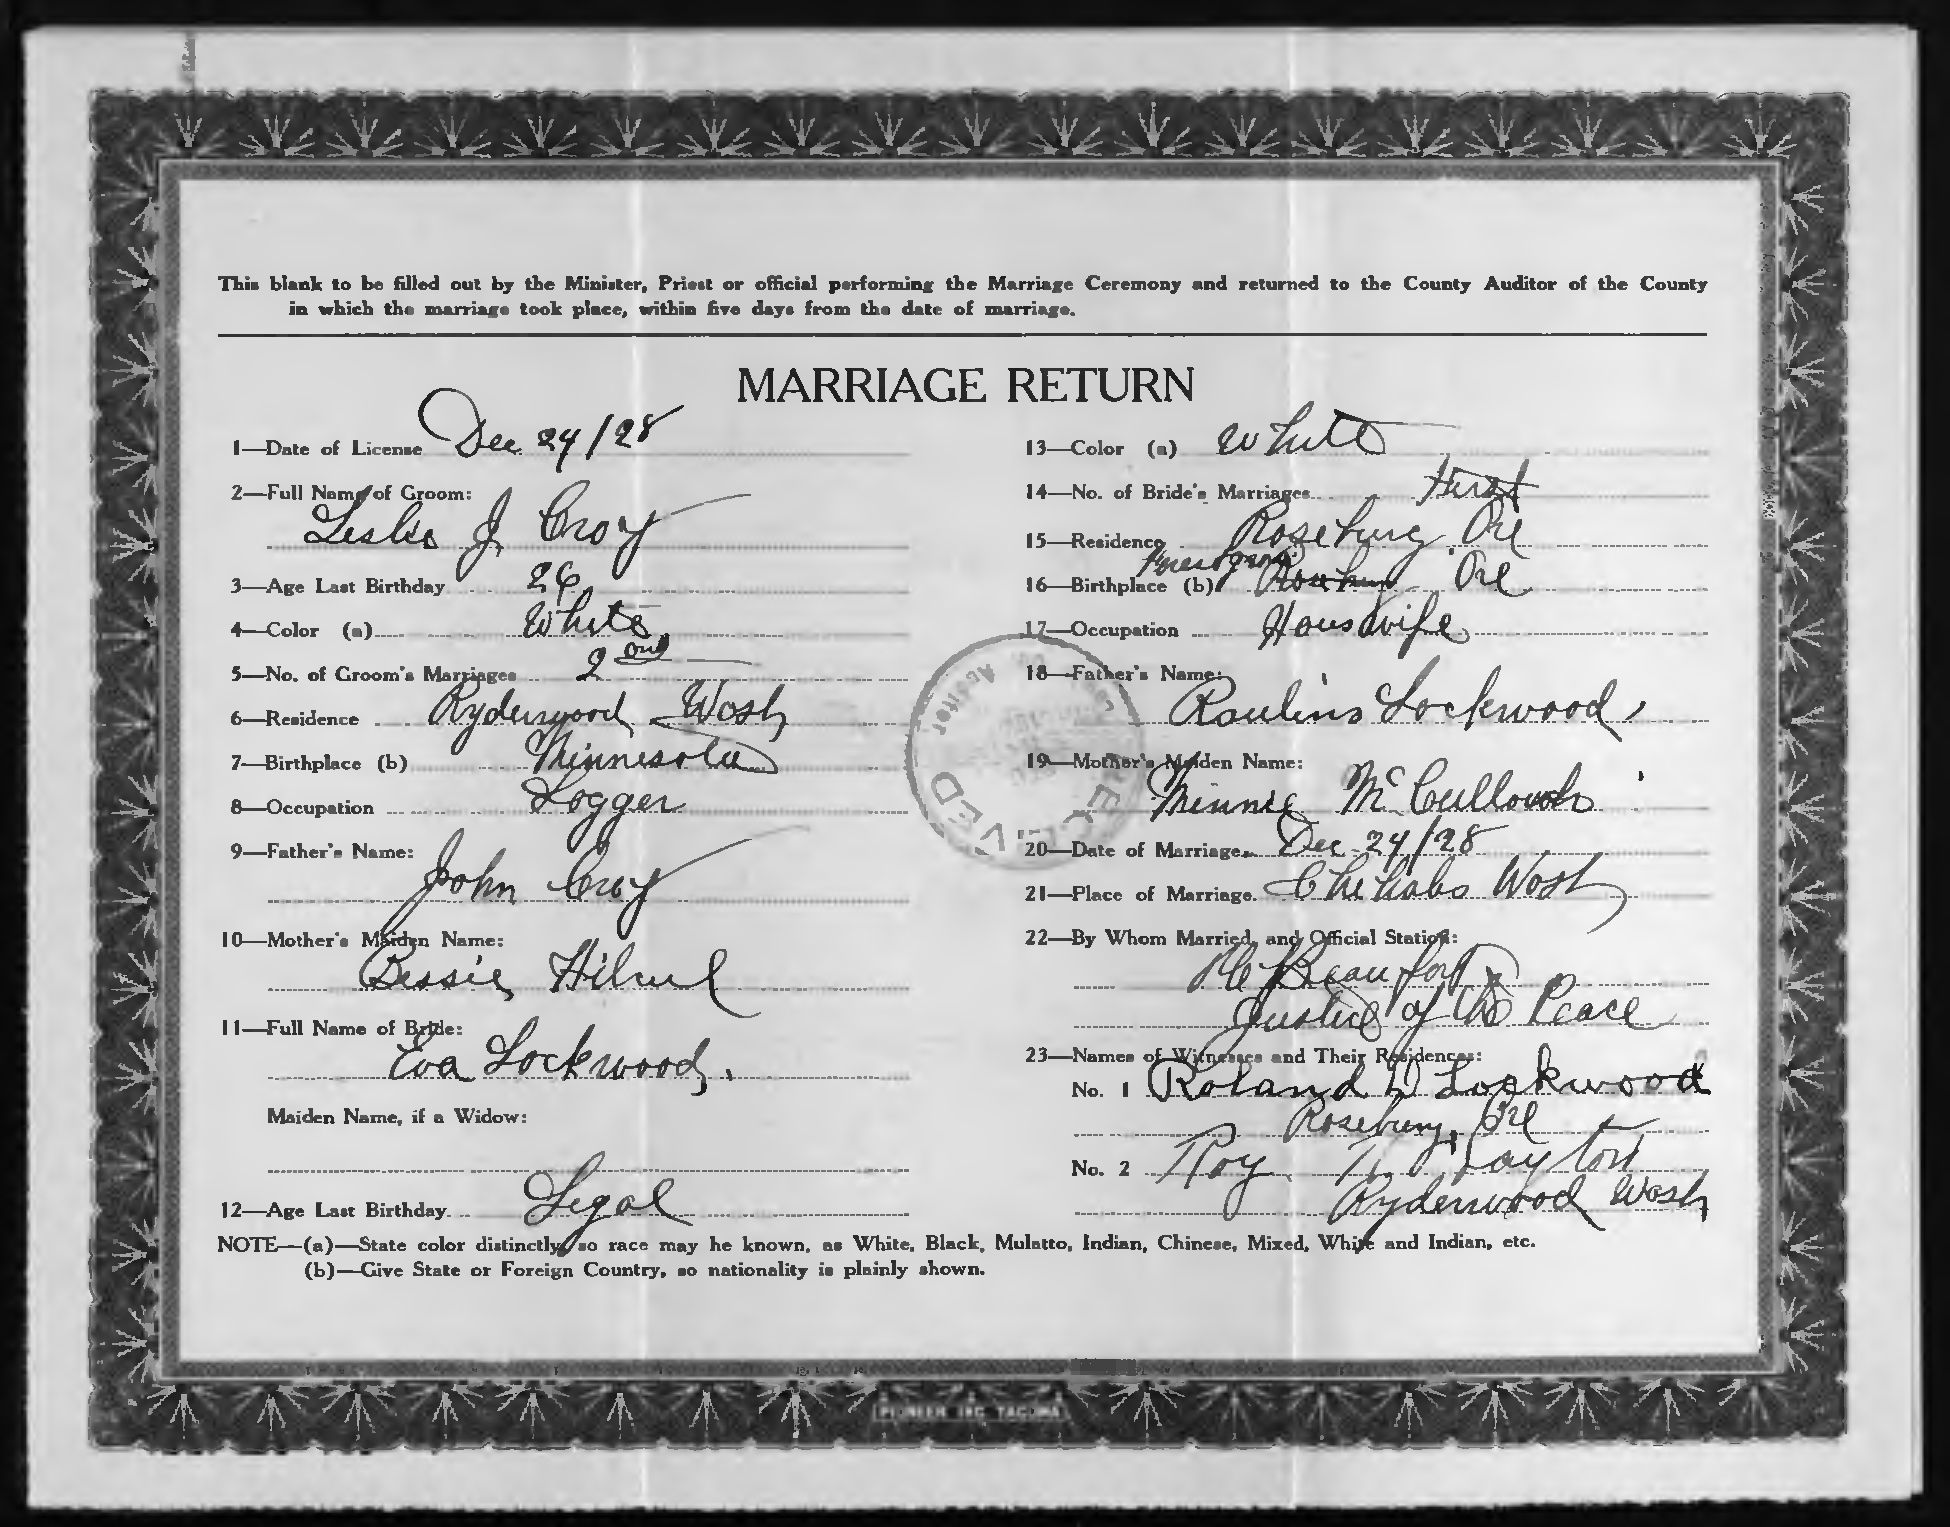 This blank to be filled out by the Minister, Priest or official performing the Marriage Ceremony and returned to the County Auditor of the County
in which the marriage took place, within five days from the date of marriage.
MARRIAGE RETURN
1—Date of License Dec 24/28
2—Full Name of Groom:
Leslie J. Croy
3—Age Last Birthday 26
4—Color (a) White
5—No. of Groom's Marriages 2ond
6—Residence Ryderwood Wash
7—Birthplace (b) Minnesota
8—Occupation Logger
9—Father's Name:
John Croy
10—Mother's Maiden Name:
Bessie
11—Full Name of Bride:
Eva Lockwood.
Maiden Name, if a Widow:
12—Age Last Birthday Legal
13—Color (a) White
14—No. of Bride's Marriages First
15—Residence Roseburg Ore
16—Birthplace (b) Ore
17—Occupation Housewife
18—Father's Name:
Lockwood
19—Mother's Maiden Name:
Minnie McCullouch
20—Date of Marriage Dec 24/28
21—Place of Marriage Chehalis Wash
22—By Whom Married, and Official Station:
Beaufort
Justice of the Peace
23—Names of Witnesses and Their Residences:
No. 1 Roland D Lockwood
Roseburg, Ore
No. 2 Roy
Ryderwood Wash
NOTE—(a)—State color distinctly, so race may be known, as White, Black, Mulatto, Indian, Chinese, Mixed, White and Indian, etc.
(b)—Give State or Foreign Country, so nationality is plainly shown.
RECEIVED
Auditor
PIONEER INC TACOMA